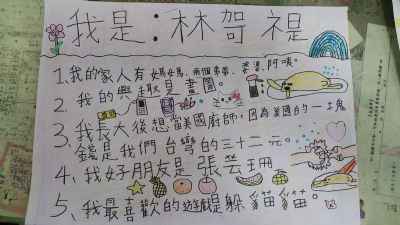 我是:林哿禔
1、我的家人有媽媽、兩個弟弟、婆婆、阿嬤。
2、我的興趣是畫圖。
3、我長大後想當美國廚師,因為美國的一土鬼
錢是我們台彎的三十二元。
4、我好朋友是張芸珊
5、我最喜歡的遊戲是躲貓貓。